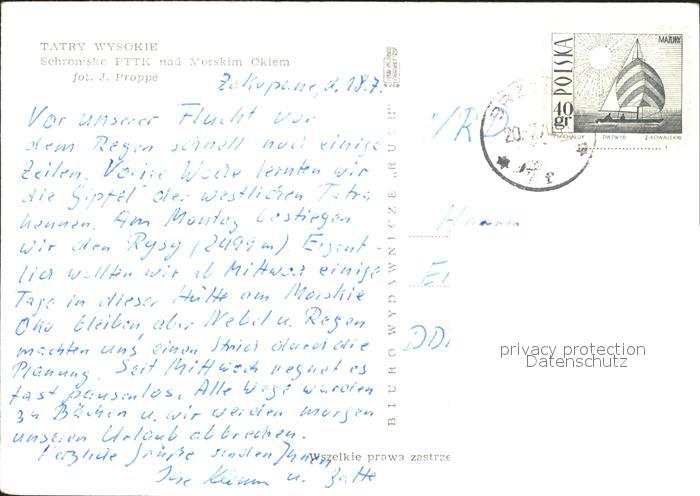 TATRY WYSOKIE
Schronisko PTTK nad Morskim Okiem
fot. J. Proppe
Zakopane, d. 18.7.
Vor unserer Flucht vor
dem Regen schnell noch einige
Zeilen. Vorige Woche lernten wir
die Gipfel der westlichen Tatra
kennen. Am Montag bestiegen
wir den Rysy (2499m) Eigent-
lich wollten wir ab Mittwoch einige
Tage in dieser Hütte am Morskie
Oko bleiben aber Nebel u. Regen
machten uns einen Strich durch die
Planung. Seit Mittwoch regnet es
fast pausenlos. Alle Wege wurden
zu Bächen u. wir werden morgen
unseren Urlaub abbrechen.
Herzliche Grüße senden Ihnen
u. Gatte
BIURO WYDAWNICZE „RUCH"
Wszelkie prawa zastrze
POLSKA
40 gr
MAZURY
Z. KOWALSKI
Herrn
DD
privacy protection
Datenschutz